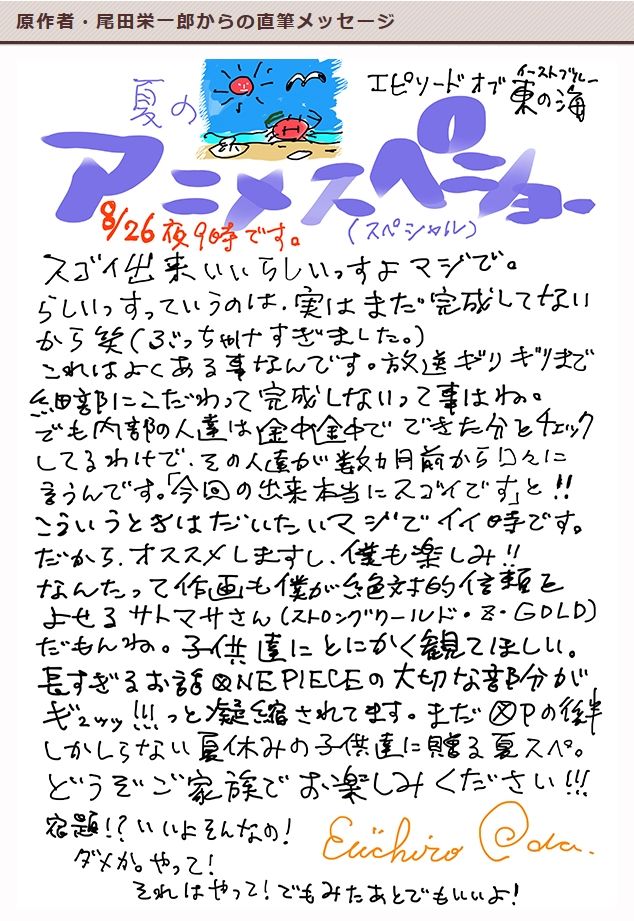 原作者・尾田栄一郎からの直筆メッセージ
夏の
エピソードオブ東の海
イーストブルー
アニメスペショー
8/26夜9時です。
(スペシャル)
スゴイ出来いいらしいっすよマジで。
らしいっすっていうのは、実はまだ完成してない
から笑(ぶっちゃけすぎました。)
これはよくある事なんです。放送ギリギリまで
細部にこだわって完成しないって事はね。
でも内部の人達は途中途中でできた分とチェック
してるわけで、その人達が数カ月前から口々に
言うんです。「今回の出来本当にスゴイです」と!!
こういうときはだいたいマジでイイ時です。
だから、オススメしますし、僕も楽しみ!!
なんたって作画も僕が絶対的信頼を
よせるサトマサさん(ストロングワールド・Z・GOLD)
だもんね。子供達にとにかく観てほしい。
長すぎるお話ONE PIECEの大切な部分が
ギュッッ!!!っと凝縮されてます。まだOPの後半
しかしらない夏休みの子供達に贈る夏スペ。
どうぞご家族でお楽しみください!!!
宿題!?いいよそんなの!
ダメか。やって!
それはやって!でもみたあとでもいいよ!
Eiichiro Oda.